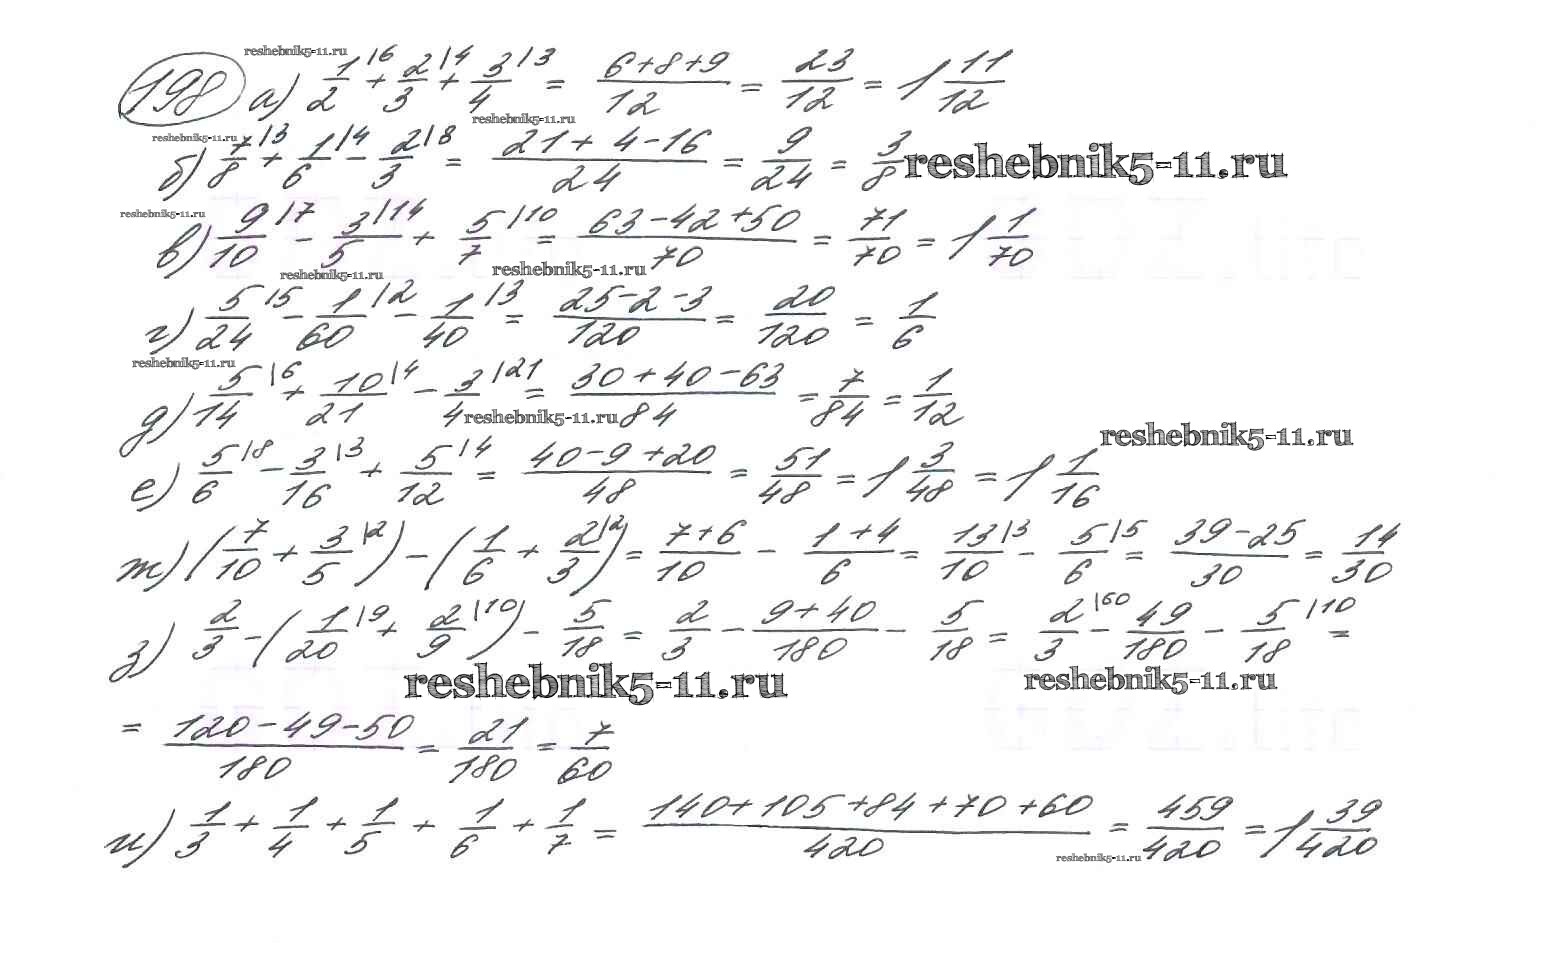 reshebnik5-11.ru
198 а) 1/2 |6 + 2/3 |4 + 3/4 |3 = (6+8+9)/12 = 23/12 = 1 11/12
reshebnik5-11.ru
reshebnik5-11.ru
б) 7/8 |3 + 1/6 |4 − 2/3 |8 = (21+4−16)/24 = 9/24 = 3/8 reshebnik5-11.ru
reshebnik5-11.ru
в) 9/10 |7 − 3/5 |14 + 5/7 |10 = (63−42+50)/70 = 71/70 = 1 1/70
reshebnik5-11.ru reshebnik5-11.ru
г) 5/24 |5 − 1/60 |2 − 1/40 |3 = (25−2−3)/120 = 20/120 = 1/6
reshebnik5-11.ru
д) 5/14 |6 + 10/21 |4 − 3/4 |21 = (30+40−63)/84 = 7/84 = 1/12
reshebnik5-11.ru
reshebnik5-11.ru
е) 5/6 |8 − 3/16 |3 + 5/12 |4 = (40−9+20)/48 = 51/48 = 1 3/48 = 1 1/16
ж) (7/10 + 3/5 |2) − (1/6 + 2/3 |2) = (7+6)/10 − (1+4)/6 = 13/10 |3 − 5/6 |5 = (39−25)/30 = 14/30
з) 2/3 − (1/20 |9 + 2/9 |10) − 5/18 = 2/3 − (9+40)/180 − 5/18 = 2/3 |60 − 49/180 − 5/18 |10 =
reshebnik5-11.ru reshebnik5-11.ru
= (120−49−50)/180 = 21/180 = 7/60
и) 1/3 + 1/4 + 1/5 + 1/6 + 1/7 = (140+105+84+70+60)/420 = 459/420 = 1 39/420
reshebnik5-11.ru